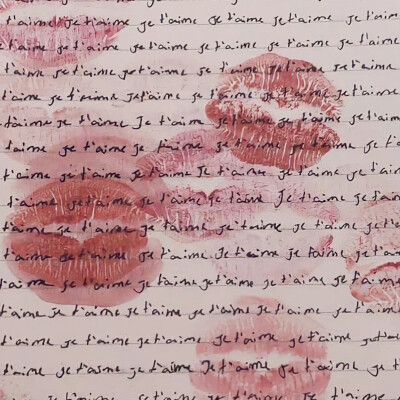 t'aime je t'aime je t'aime je t'aime je t'aime je t'aim
t'aime je t'aime je t'aime je t'aime je t'aime je
t'aime je t'aime je t'aime je t'aime je t'aime je t'aime
t'aime je t'aime je t'aime je t'aime je t'aime je t'aime
t'aime je t'aime je t'aime Je t'aime je t'aime je t'aime
t'aime je t'aime je t'aime je t'aime je t'aime je t
t'aime je t'aime je t'aime Je t'aime je t'aime je t'aime
t'aime je t'aime je t'aime je t'aime Je t'aime je
t'aime je t'aime je t'aime je t'aime je t'aime je
t'aime je t'aime je t'aime je t'aime je t'aime je
t'aime je t'aime je t'aime je t'aime je t'aime je t'aime
t'aime je t'aime je t'aime je t'aime je t'aime je t'
t'aime je t'aime je t'aime je t'aime je t'aime
t'aime je t'aime je t'aime Je t'aime je t'aime je t'aime
je t'aime je t'aime je t'aime je t'aime